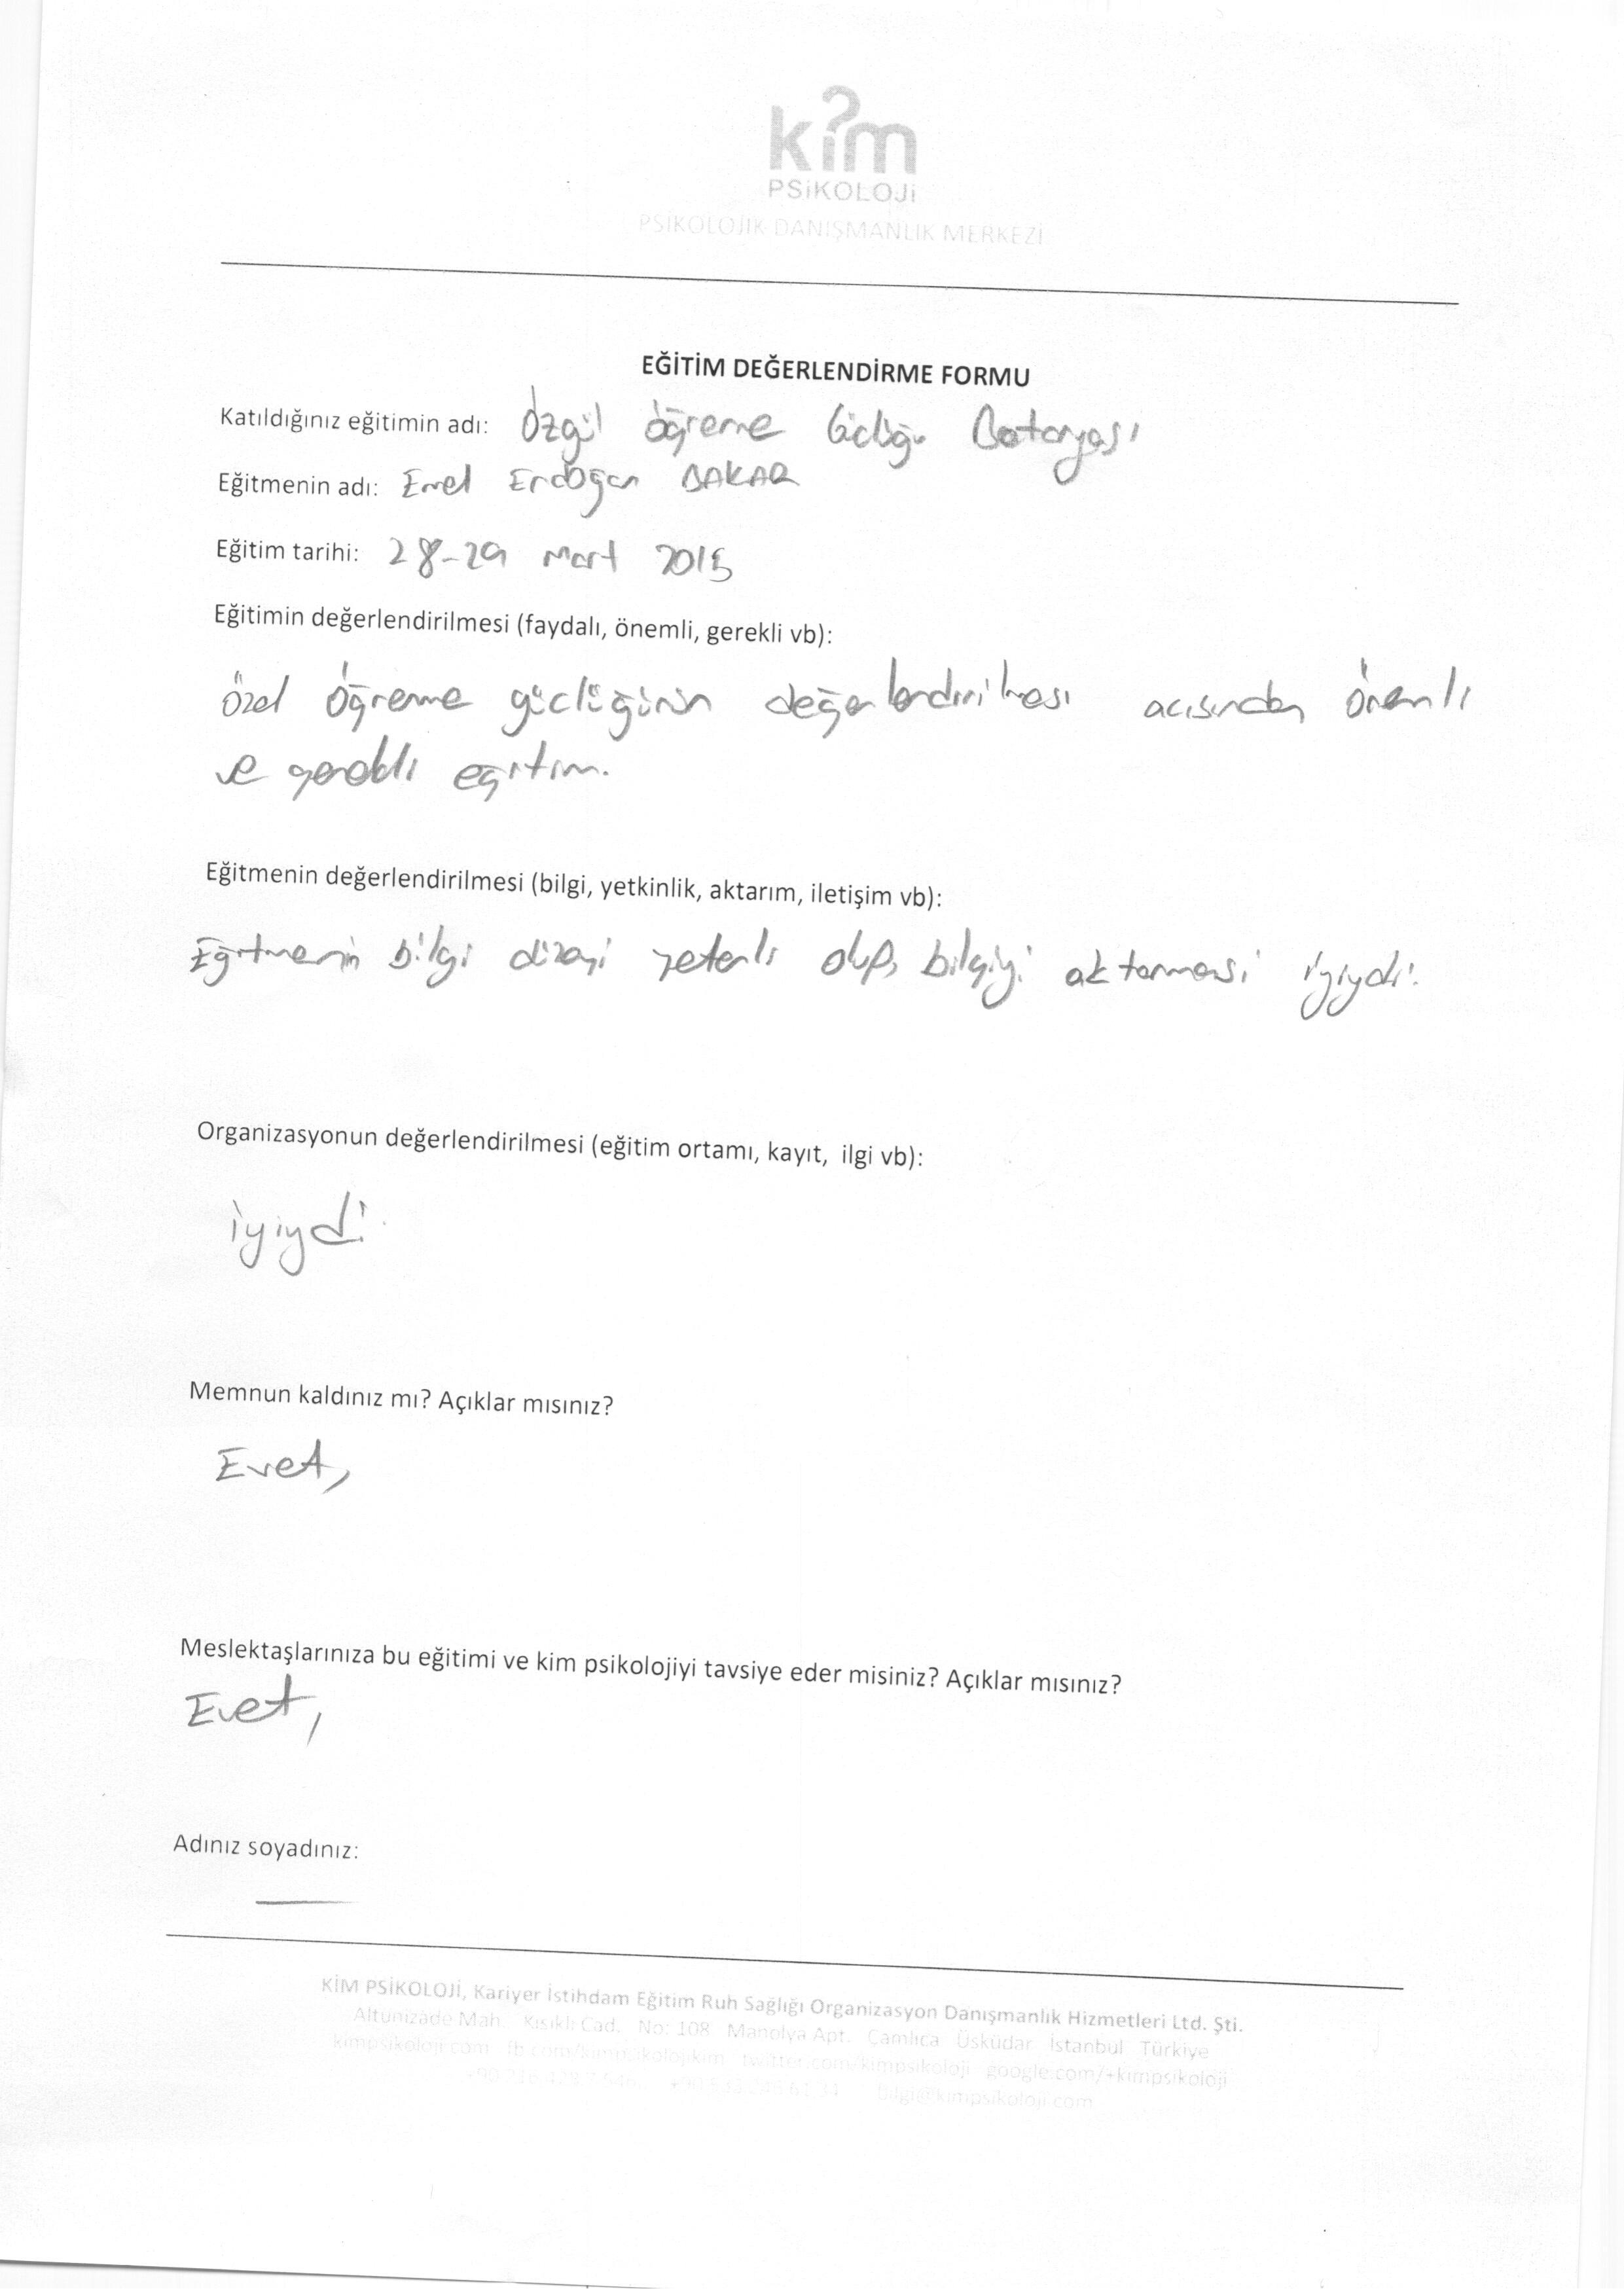 kim
PSiKOLOJi
PSİKOLOJİK DANIŞMANLIK MERKEZİ
EĞİTİM DEĞERLENDİRME FORMU
Katıldığınız eğitimin adı: Özgül öğrenme Güçlüğü Bataryası
Eğitmenin adı: Emel Erdoğan BAKAR
Eğitim tarihi: 28-29 mart 2015
Eğitimin değerlendirilmesi (faydalı, önemli, gerekli vb):
özel öğrenme güçlüğünün değerlendirilmesi acısından önemli
ve gerekli eğitim.
Eğitmenin değerlendirilmesi (bilgi, yetkinlik, aktarım, iletişim vb):
Eğitmenin bilgi düzeyi yeterli olup, bilgiyi aktarması iyiydi.
Organizasyonun değerlendirilmesi (eğitim ortamı, kayıt, ilgi vb):
iyiydi.
Memnun kaldınız mı? Açıklar mısınız?
Evet,
Meslektaşlarınıza bu eğitimi ve kim psikolojiyi tavsiye eder misiniz? Açıklar mısınız?
Evet,
Adınız soyadınız:
KİM PSİKOLOJİ, Kariyer İstihdam Eğitim Ruh Sağlığı Organizasyon Danışmanlık Hizmetleri Ltd. Şti.
Altunizade Mah. Kısıklı Cad. No: 108 Manolya Apt. Çamlıca Üsküdar İstanbul Türkiye
kimpsikoloji.com fb.com/kimpsikolojikim twitter.com/kimpsikoloji google.com/+kimpsikoloji
bilgi@kimpsikoloji.com